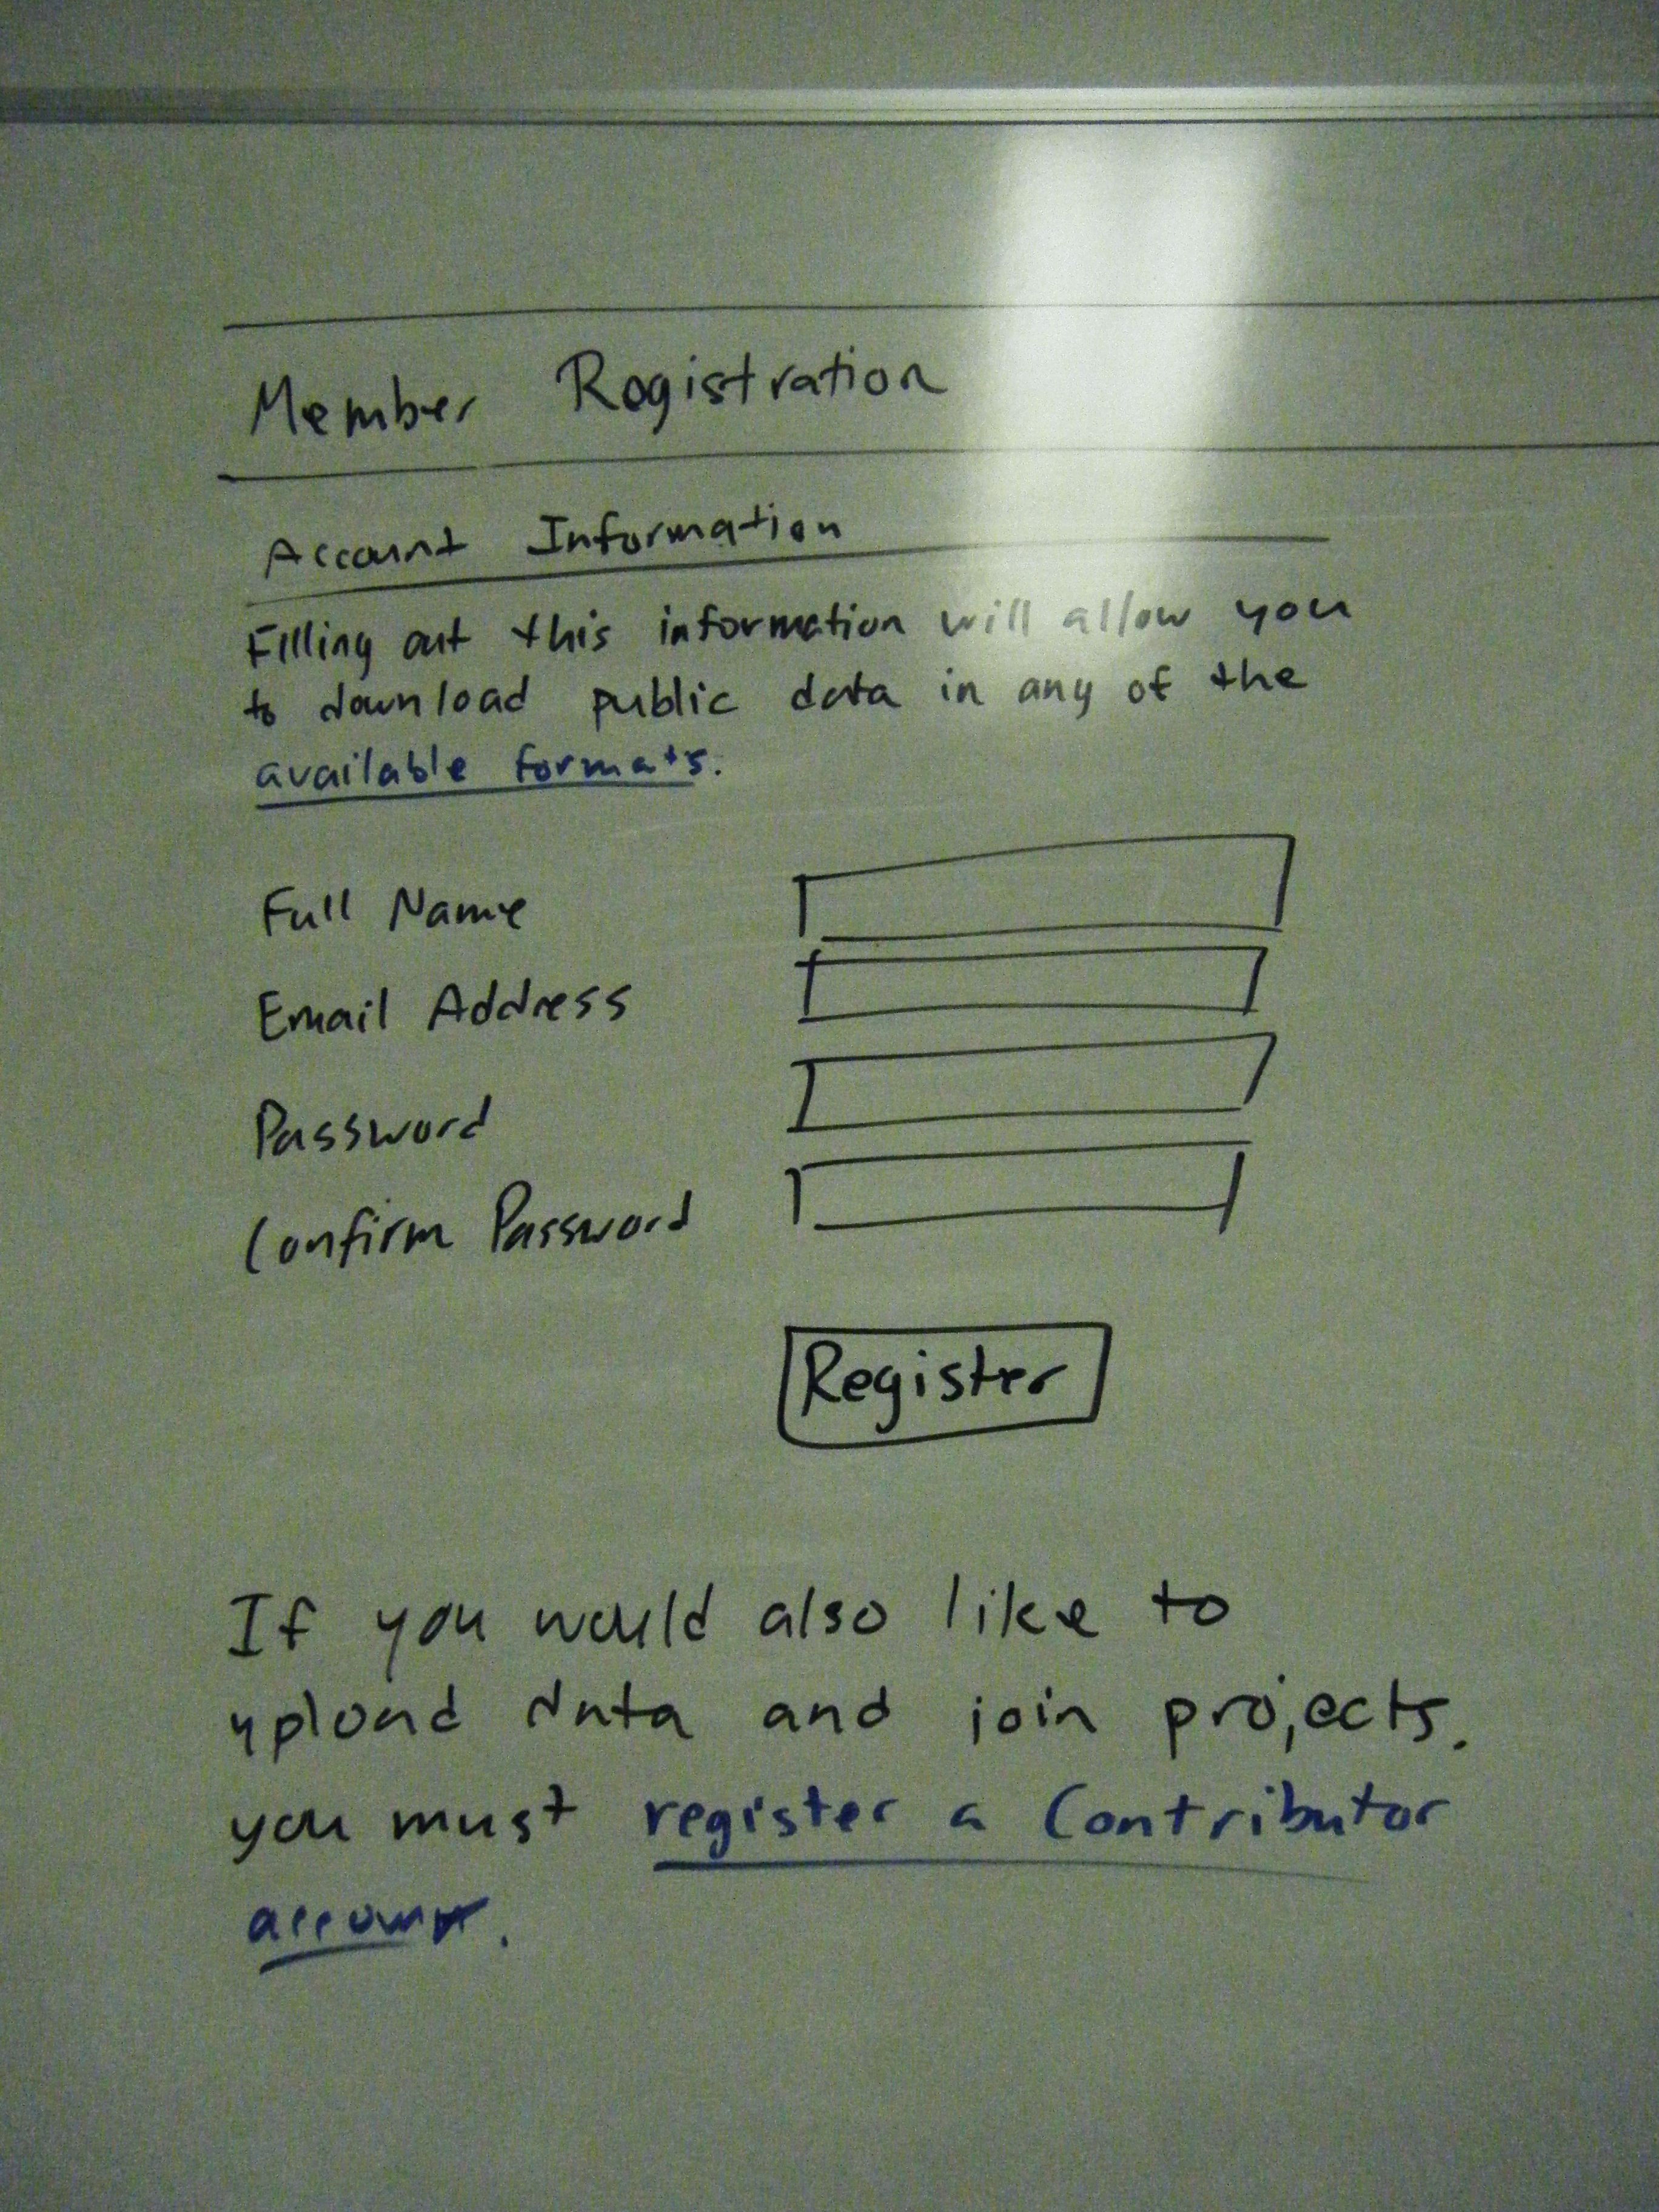 Member Registration
Account Information
Filling out this information will allow you
to download public data in any of the
available formats.
Full Name
Email Address
Password
Confirm Password
Register
If you would also like to
upload data and join projects.
you must register a Contributor
account.